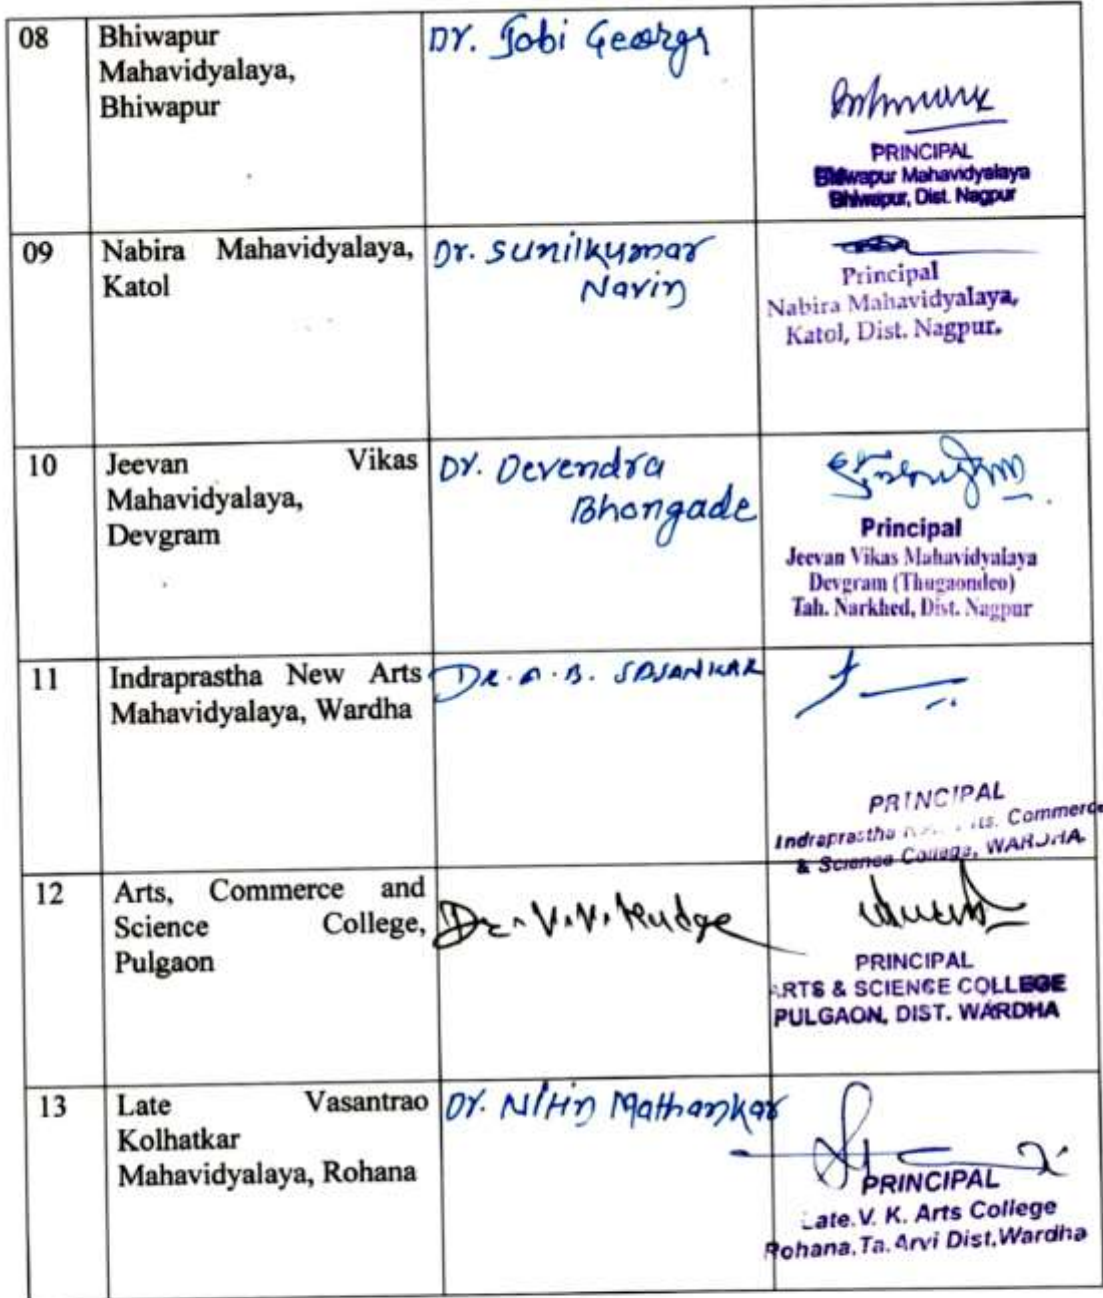 08
Bhiwapur
Mahavidyalaya,
Bhiwapur
Dr. Jobi George
PRINCIPAL
Bhiwapur Mahavidyalaya
Bhiwapur, Dist. Nagpur
09
Nabira Mahavidyalaya,
Katol
Dr. Sunilkumar
Navin
Principal
Nabira Mahavidyalaya,
Katol, Dist. Nagpur.
10
Jeevan Vikas
Mahavidyalaya,
Devgram
Dr. Devendra
Bhongade
Principal
Jeevan Vikas Mahavidyalaya
Devgram (Thugaondeo)
Tah. Narkhed, Dist. Nagpur
11
Indraprastha New Arts
Mahavidyalaya, Wardha
DR. A. B. SASANKAR
PRINCIPAL
Indraprastha Commerce
& Science College, WARDHA.
12
Arts, Commerce and
Science College,
Pulgaon
Dr. V.V.
PRINCIPAL
ARTS & SCIENCE COLLEGE
PULGAON, DIST. WARDHA
13
Late Vasantrao
Kolhatkar
Mahavidyalaya, Rohana
Dr. Nitin Mathankar
PRINCIPAL
Late.V. K. Arts College
Rohana,Ta.Arvi Dist,Wardha